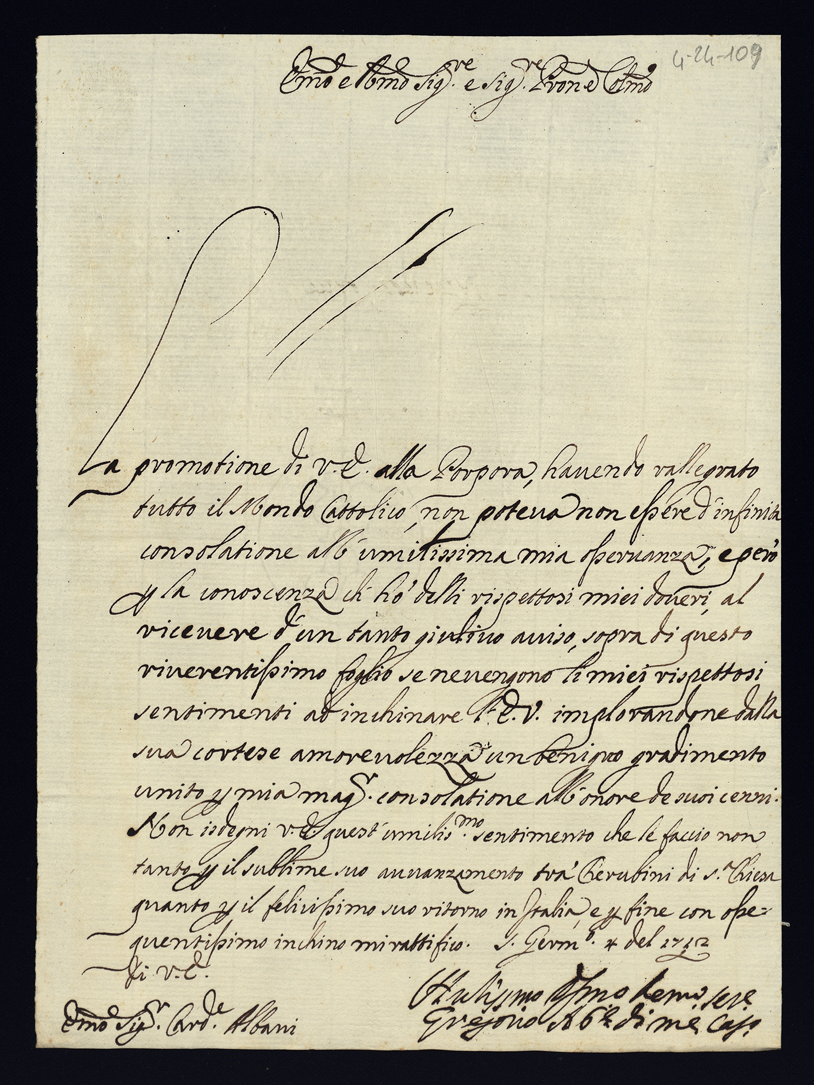 4-24-109
Em̃o e Rm̃o Sig.re e Sig.re Pron e Colm̃o
La promotione di V. E. alla Porpora, havendo rallegrato
tutto il Mondo Cattolico, non poteva non essere d'infinita
consolatione all'umilissima mia osservanza, e però
p la conoscenza ch'hò delli rispettosi miei doveri, al
ricevere d'un tanto giulivo aviso, sopra di questo
riverentissimo foglio se ne vengono li miei rispettosi
sentimenti ad inchinare l'E. V. implorandone dalla
sua cortese amorevolezza un benigno gradimento
unito p mia mag.r consolatione all'onore de suoi cenni.
Non isdegni V. E. quest'umilis.mo sentimento che le faccio non
tanto p il sublime suo avvanzamento trà Cherubini di S.ta Chiesa
quanto p il felicissimo suo ritorno in Italia, e p fine con osse-
quentissimo inchino mi ratifico. S. Germ.o 4 del 1712
di V. E.
Em̃o Sig.r Card.e Albani
Gregorio Ab.e di